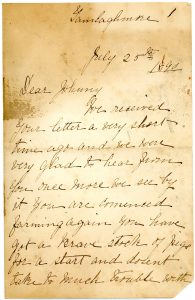 Tamlaghmore
July 25th
1891
Dear Johnny
We received
your letter a very short
time ago and we were
very glad to hear from
you once more we see by
it you are comenced
farming again you have
got a brave stock of pigs
for a start and doient
take to much trouble with